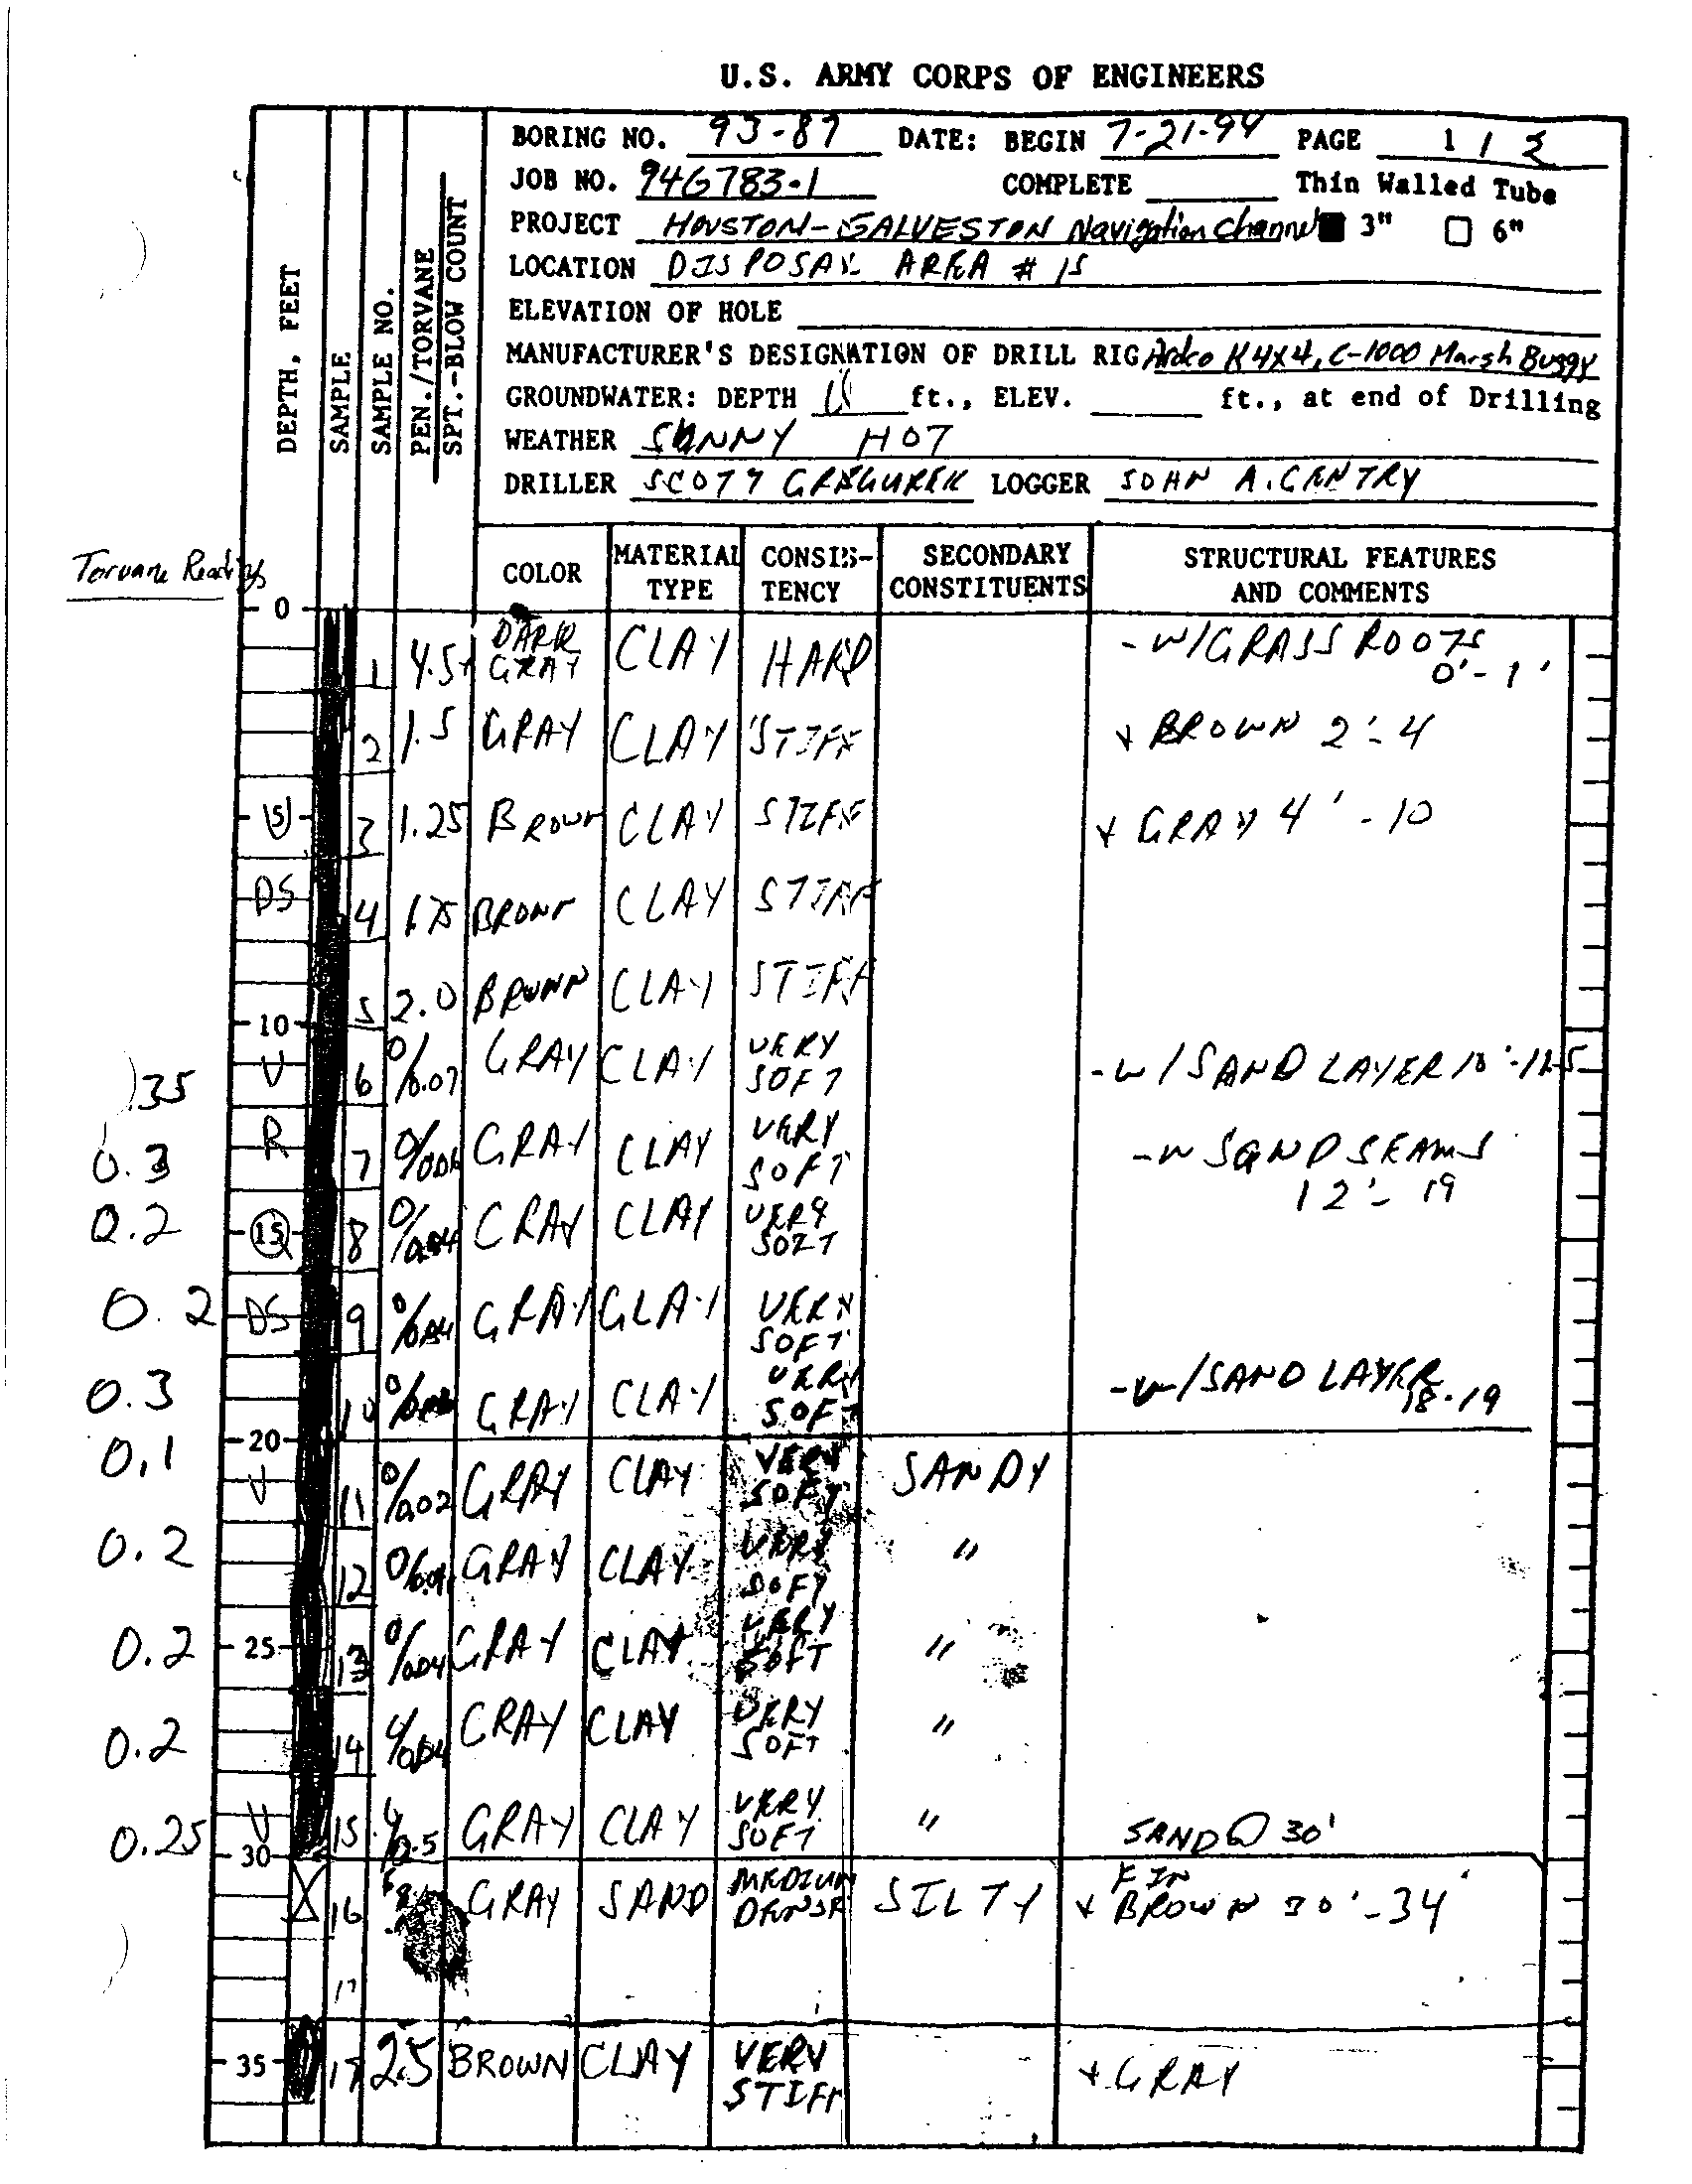 U.S. ARMY CORPS OF ENGINEERS
BORING NO. 93-87 DATE: BEGIN 7-21-94 PAGE 1 / 2
JOB NO. 94G783-1 COMPLETE Thin Walled Tube
PROJECT HOUSTON-GALVESTON Navigation Channel 3" 6"
LOCATION DISPOSAL AREA # 15
ELEVATION OF HOLE
MANUFACTURER'S DESIGNATION OF DRILL RIG Ardco K 4X4, C-1000 Marsh Buggy
GROUNDWATER: DEPTH ft., ELEV. ft., at end of Drilling
WEATHER SUNNY HOT
DRILLER SCOTT LOGGER JOHN A. GENTRY
DEPTH, FEET
SAMPLE
SAMPLE NO.
PEN./TORVANE
SPT.-BLOW COUNT
COLOR MATERIAL TYPE CONSIS-TENCY SECONDARY CONSTITUENTS STRUCTURAL FEATURES AND COMMENTS
Torvane Readings
0
1 4.5+ DARK GRAY CLAY HARD -W/GRASS ROOTS 0'-1'
2 1.5 GRAY CLAY STIFF + BROWN 2'-4
5 3 1.25 BROWN CLAY STIFF + GRAY 4'-10
DS 4 1.75 BROWN CLAY STIFF
5 2.0 BROWN CLAY STIFF
10
.35 V 6 0/0.07 GRAY CLAY VERY SOFT -W/SAND LAYER 10'-11.5
0.3 R 7 0/0.06 GRAY CLAY VERY SOFT -W SAND SEAMS 12'-19
0.2 15 8 0/0.04 GRAY CLAY VERY SOFT
0.2 DS 9 0/0.04 GRAY CLAY VERY SOFT
0.3 10 GRAY CLAY VERY SOFT -W/SAND LAYER 18-19
20
0.1 V 11 0/0.02 GRAY CLAY VERY SOFT SANDY
0.2 12 0/0.04 GRAY CLAY VERY SOFT "
0.2 25 13 0/0.04 GRAY CLAY VERY SOFT "
0.2 14 GRAY CLAY VERY SOFT "
0.25 V 15 GRAY CLAY VERY SOFT " SAND @ 30'
30
16 GRAY SAND MEDIUM DENSE SILTY + BROWN 30'-34'
17
35 17 2.5 BROWN CLAY VERY STIFF + GRAY